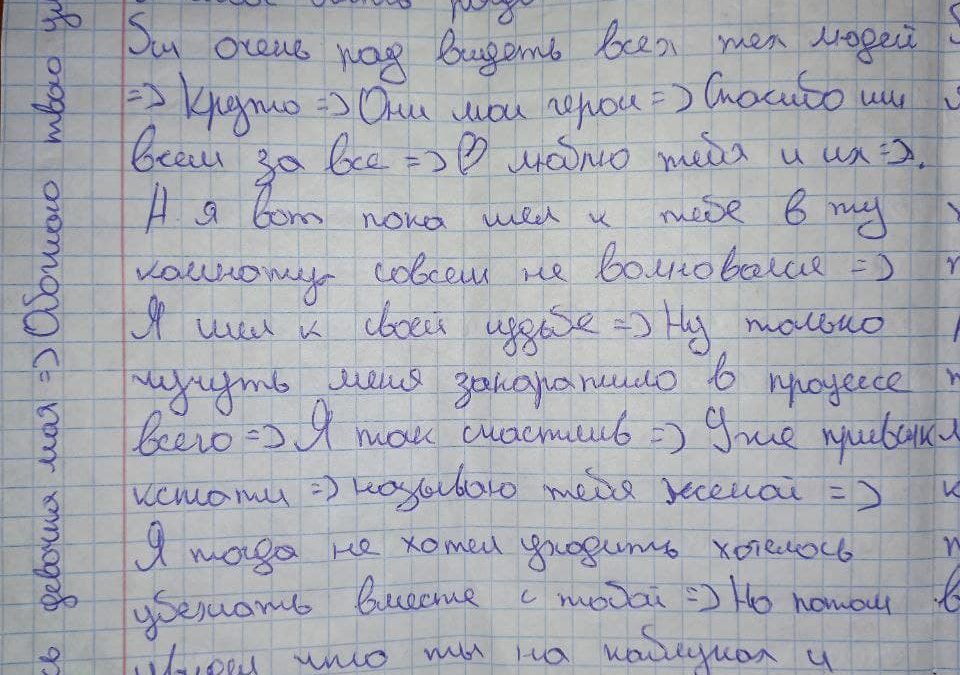 Был очень рад видеть всех тех людей
=> Круто => Они мои герои => Спасибо им
всем за все => ♡ люблю тебя и их =>.
А я вот пока шел к тебе в ту
комнату совсем не волновался =>
Я шел к своей судьбе => Ну только
чучуть меня запарашило в процессе
всего => Я так счастлив => Уже привык
кстати => называю тебя женой =>
Я тогда не хотел уходить хотелось
убежать вместе с тобой => Но потом
что ты на каблуках и
девочка моя => Обожаю твою